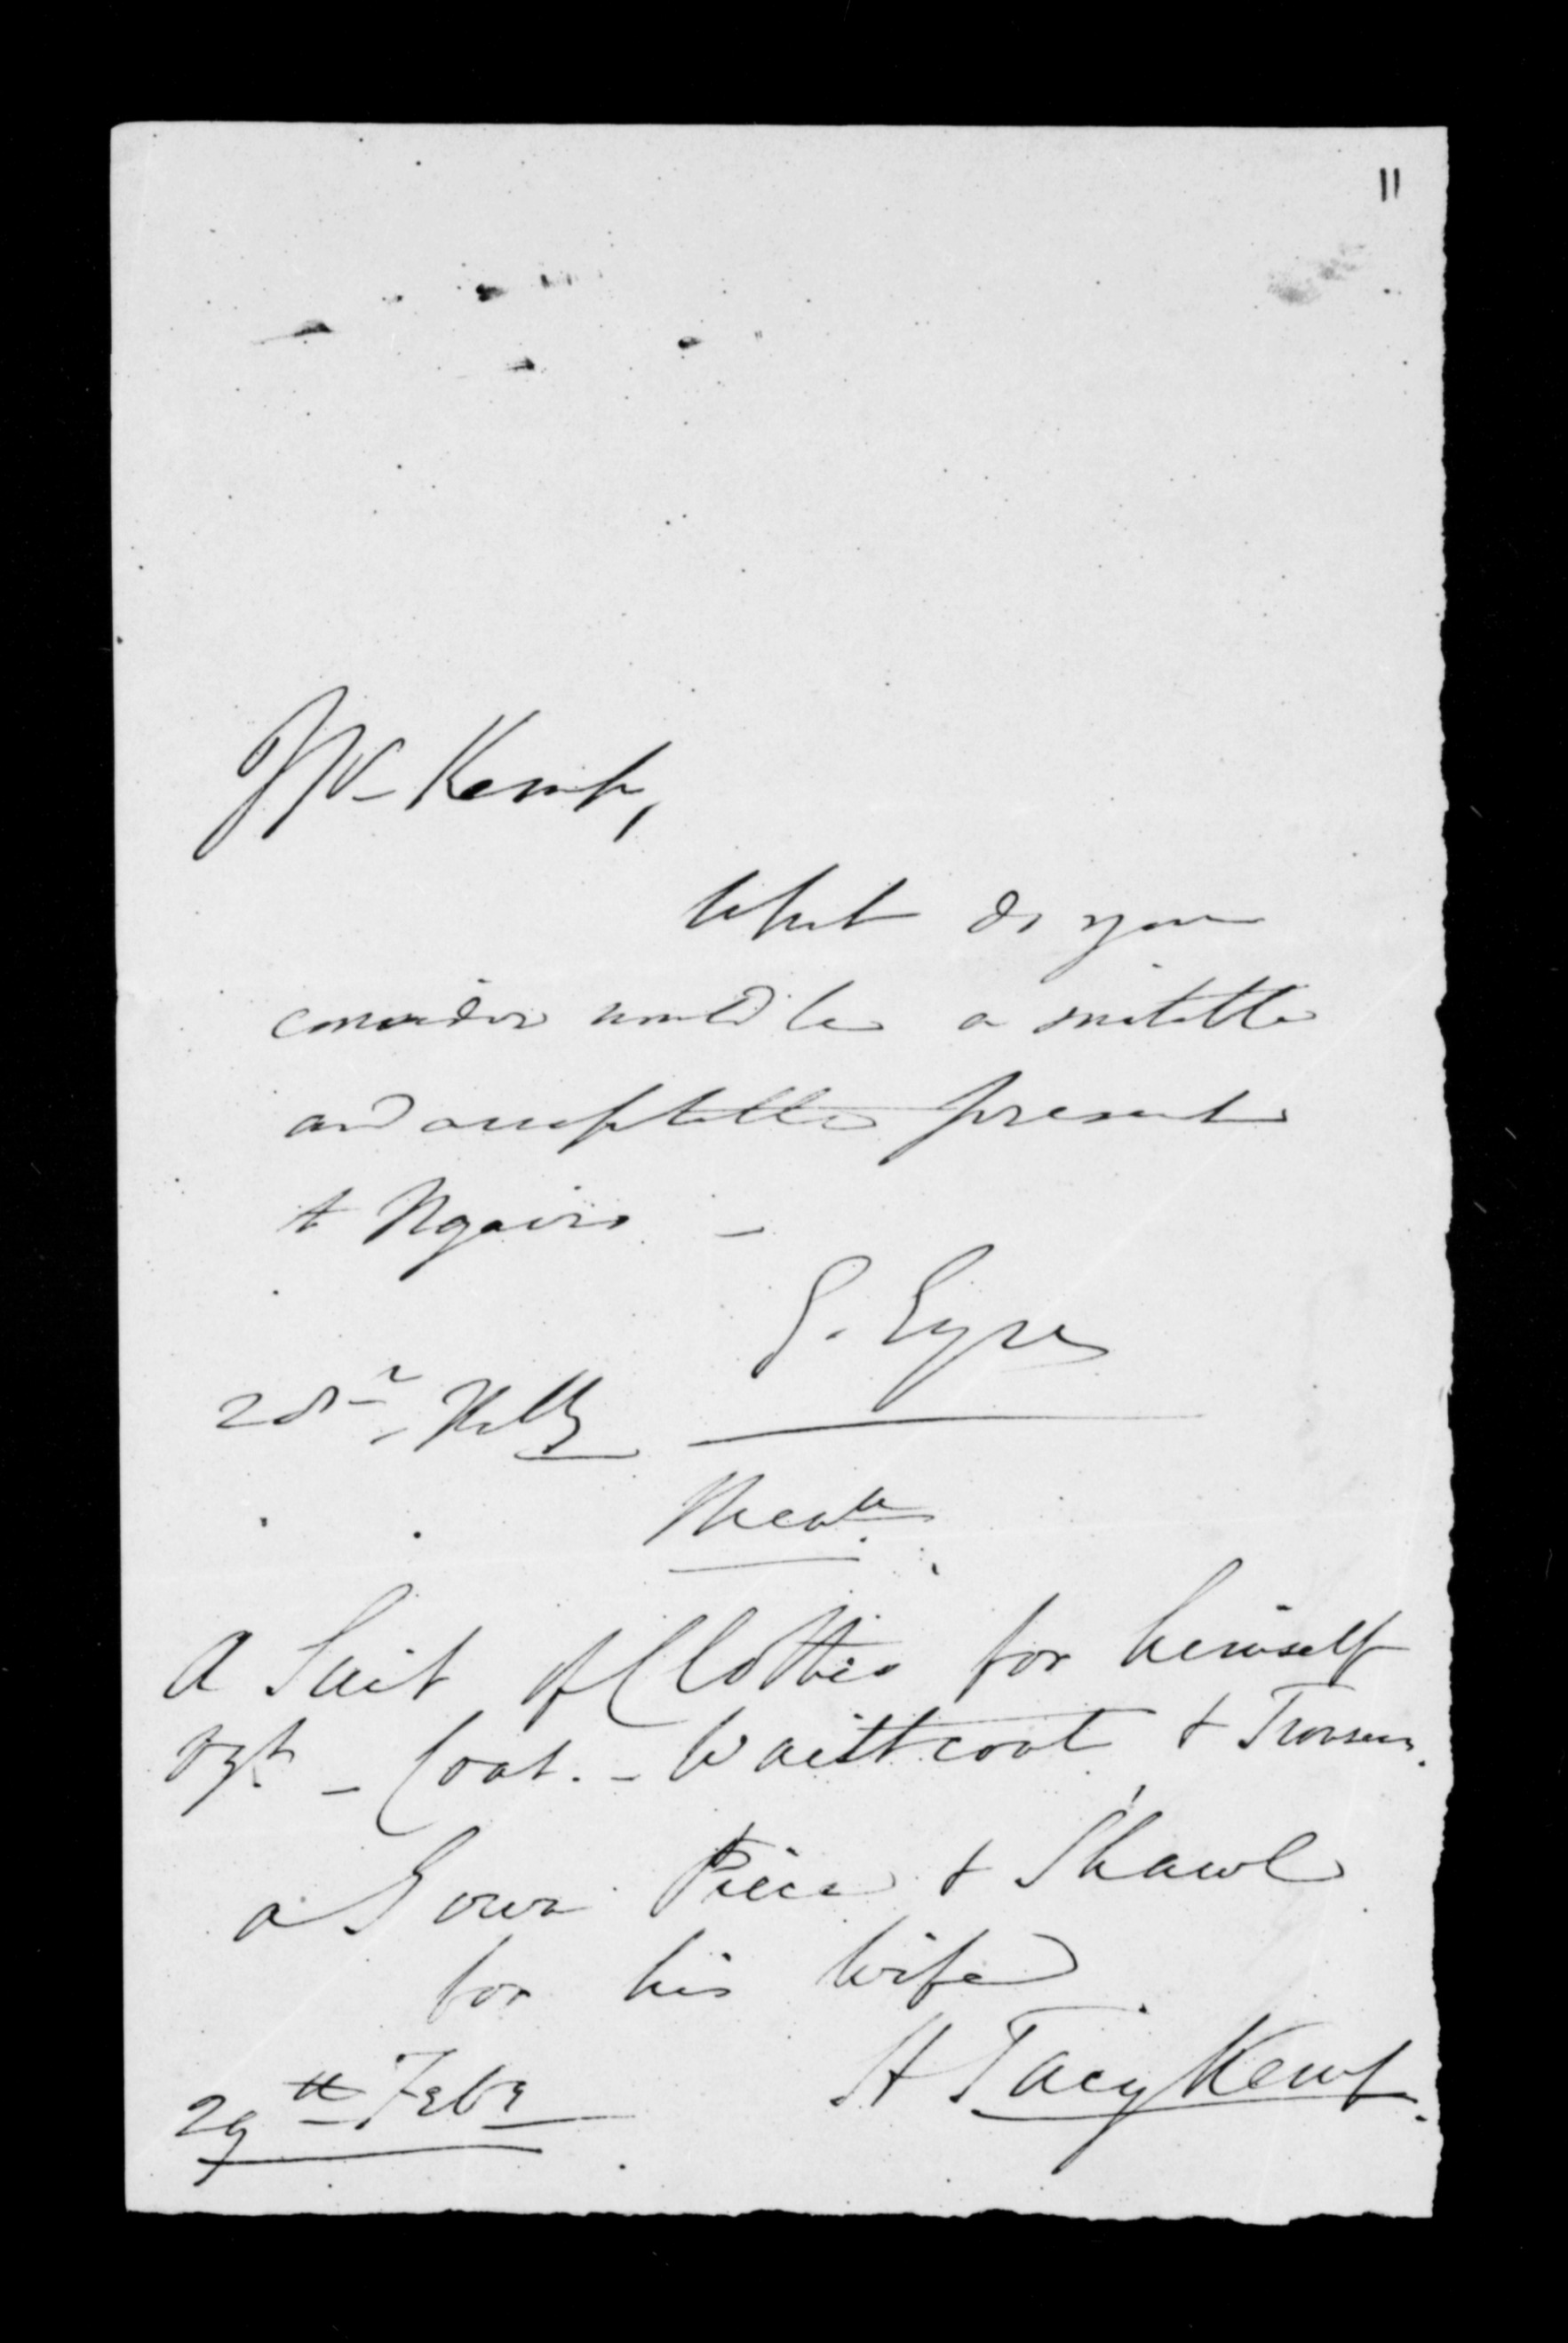 11
Mr Kemp,
What do you
consider would be a suitable
and acceptable present
to Ngairo -
E. Eyre
28th Feby
A Suit of Clothes for himself
Vizt - Coat. - Waistcoat & Trousers.
a Gown Piece & Shawl
for his Wife
H Tacy Kemp.
29th Feby